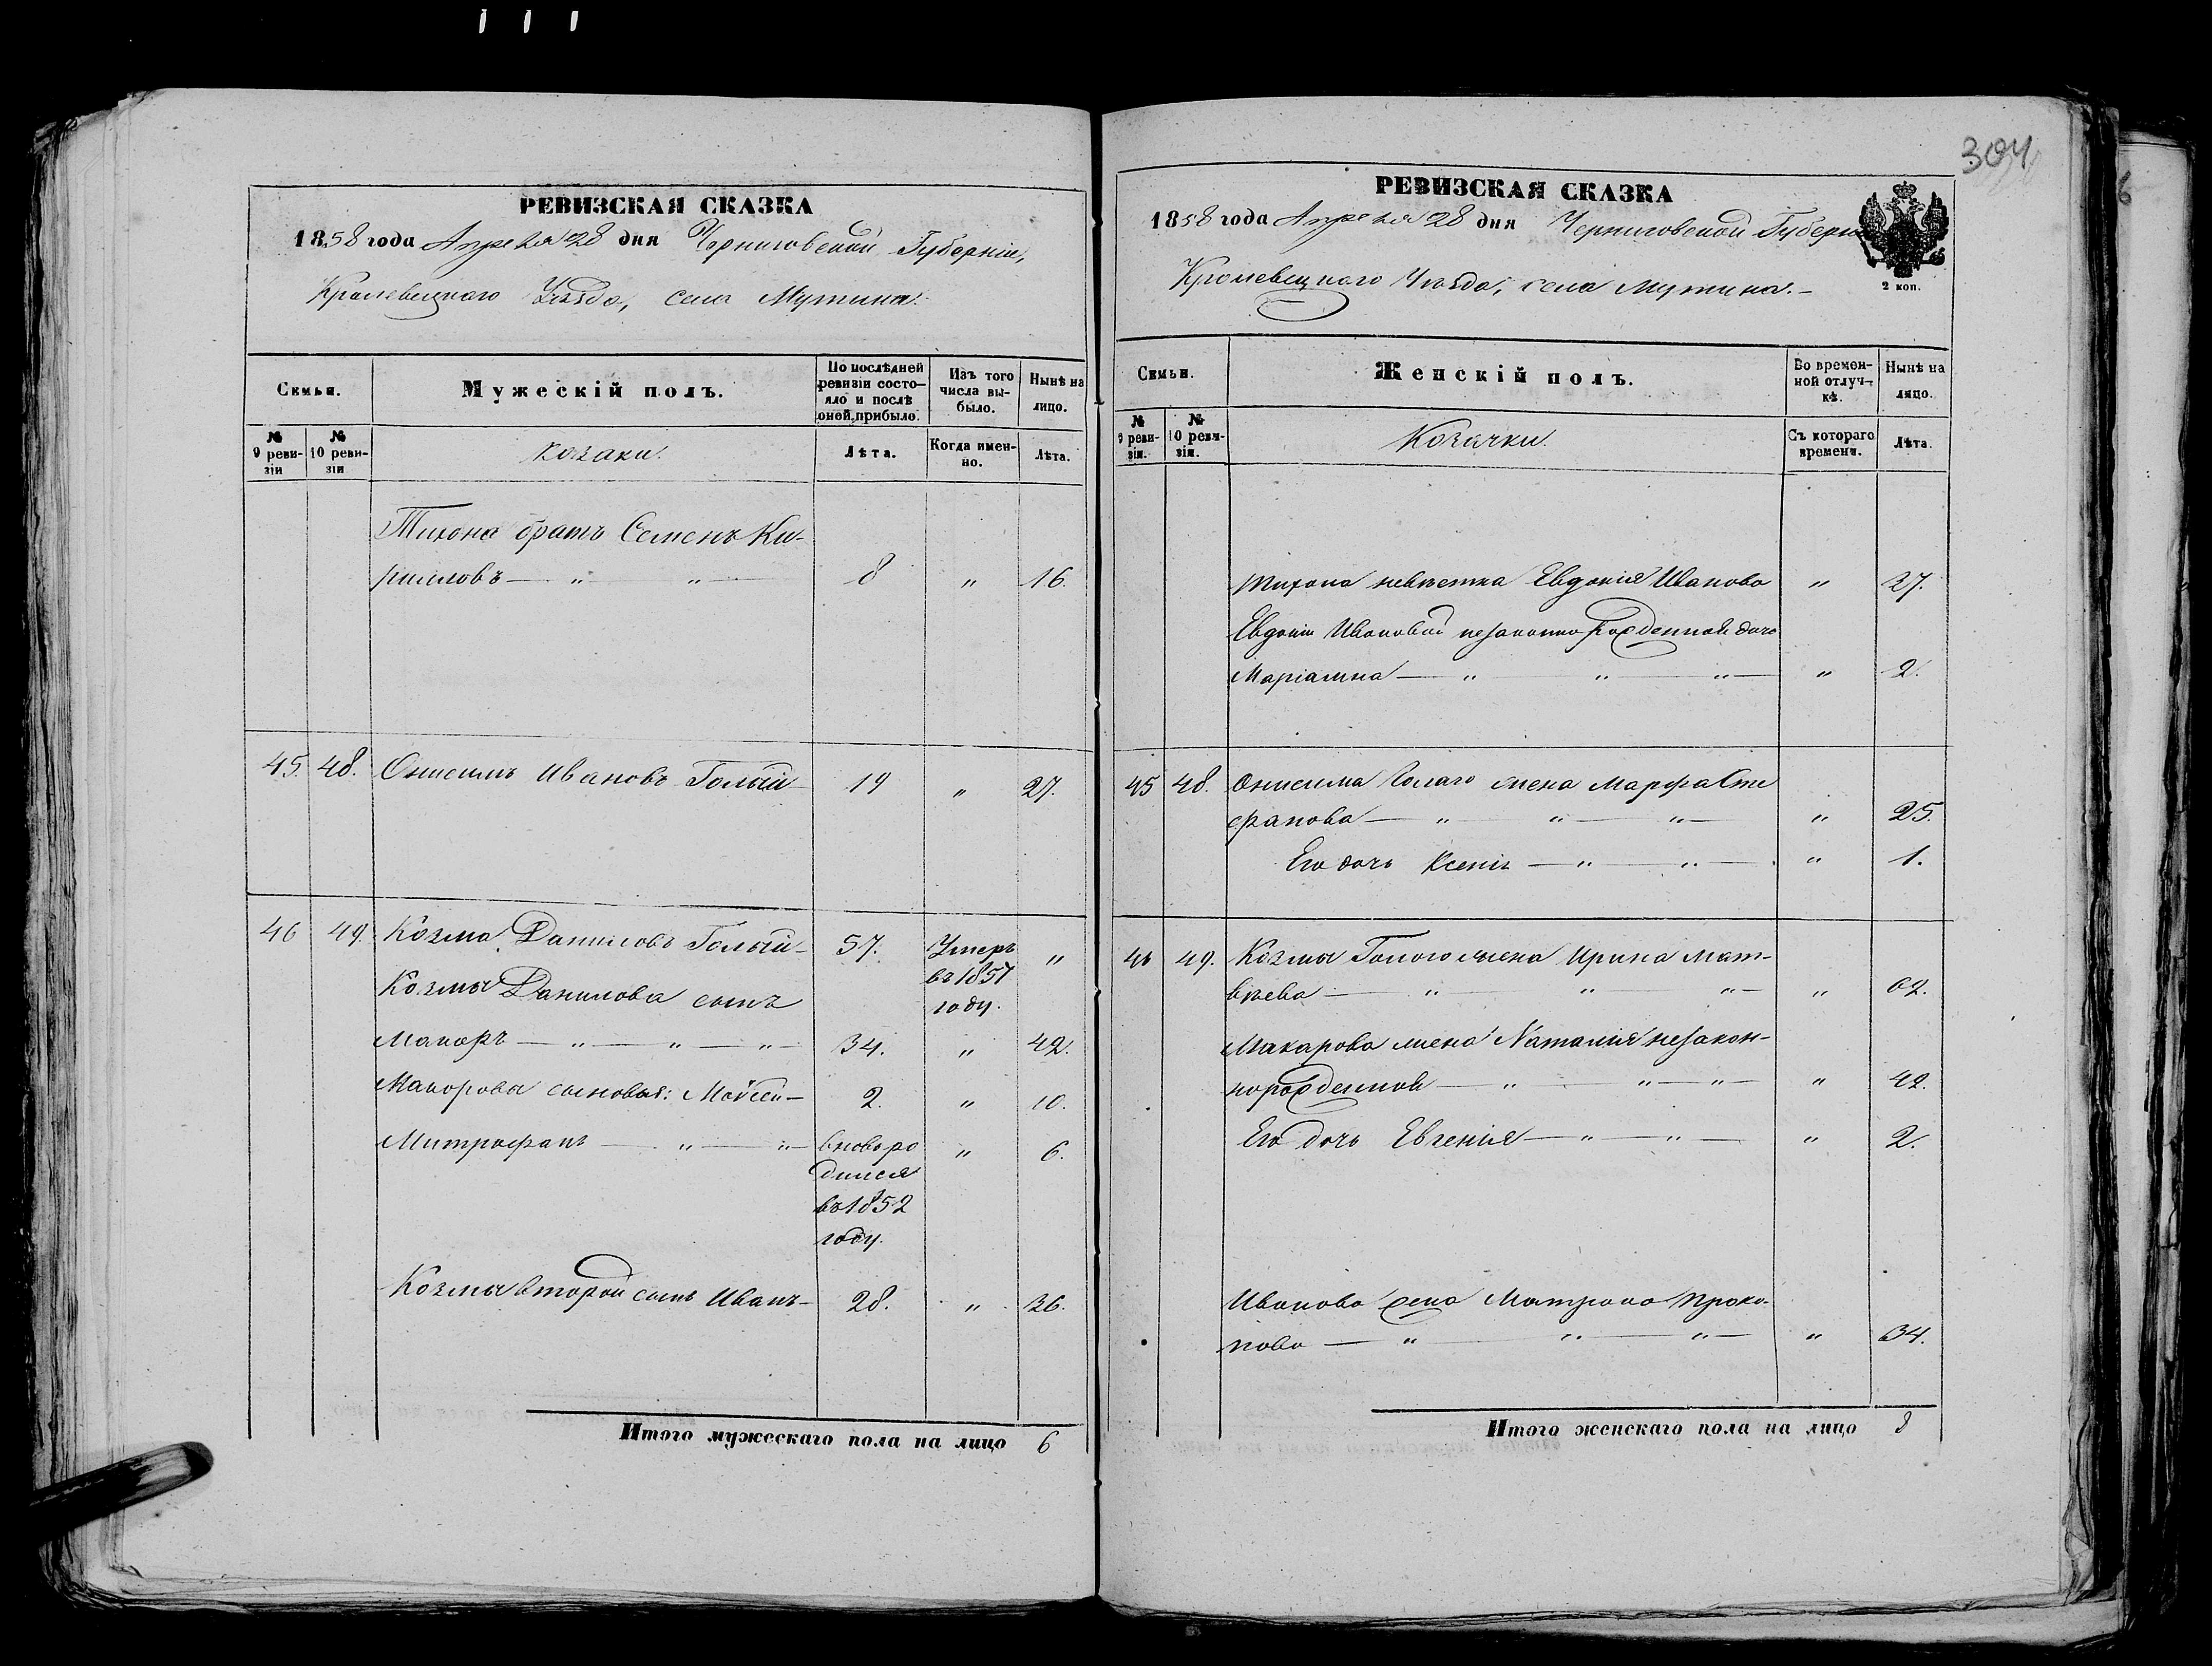 304
РЕВИЗСКАЯ СКАЗКА
1858 года Апреля 28 дня Черниговской Губерніи,
Кролевецкаго Уѣзда, села Мутина.
Семьи.
Мужескій полъ.
По послѣдней ревизіи состояло и послѣ оной прибыло.
Изъ того числа выбыло.
Нынѣ на лицо.
№ 9 ревизіи
№ 10 ревизіи
Козаки.
Лѣта.
Когда именно.
Лѣта.
Тихона братъ Семенъ Ки-
рилловъ — " " — 8 " 16.
45. 48. Онисимъ Ивановъ Голый 19 " 27.
46 49. Козма Даниловъ Голый — 57. Умеръ въ 1857 году. "
Козмы Данилова сынъ
Макаръ — " — " — " — 34. " 42.
Макарова сыновья: Мойсей — 2. " 10.
Митрофанъ — " — " — вновь родился въ 1852 году. " 6.
Козмы второй сынъ Иванъ — 28. " 36.
Итого мужескаго пола на лицо 6
РЕВИЗСКАЯ СКАЗКА
1858 года Апреля 28 дня Черниговской Губерніи
Кролевецкаго Уѣзда, села Мутина. —
2 коп.
Семьи.
Женскій полъ.
Во временной отлучкѣ.
Нынѣ на лицо.
№ 9 ревизіи.
№ 10 ревизіи.
Козачки.
Съ котораго времени.
Лѣта.
Тихона невѣстка Евдокія Иванова " 27.
Евдокіи Ивановой незаконнорожденная дочь
Маріамна — " " — " — " 2.
45 48. Онисима Голаго жена Марфа Сте
фанова — " " — " — " 25.
Его дочь Ксенія — " — " — " 1.
46 49. Козмы Голого жена Ирина Мат-
вѣева — " " " — " 62.
Макарова жена Наталія незакон-
норожденная — " " — " — " 42.
Его дочь Евгенія — " — " — " 2.
Иванова жена Матрона Проко-
пова — " " — " — " 34.
Итого женскаго пола на лицо 8